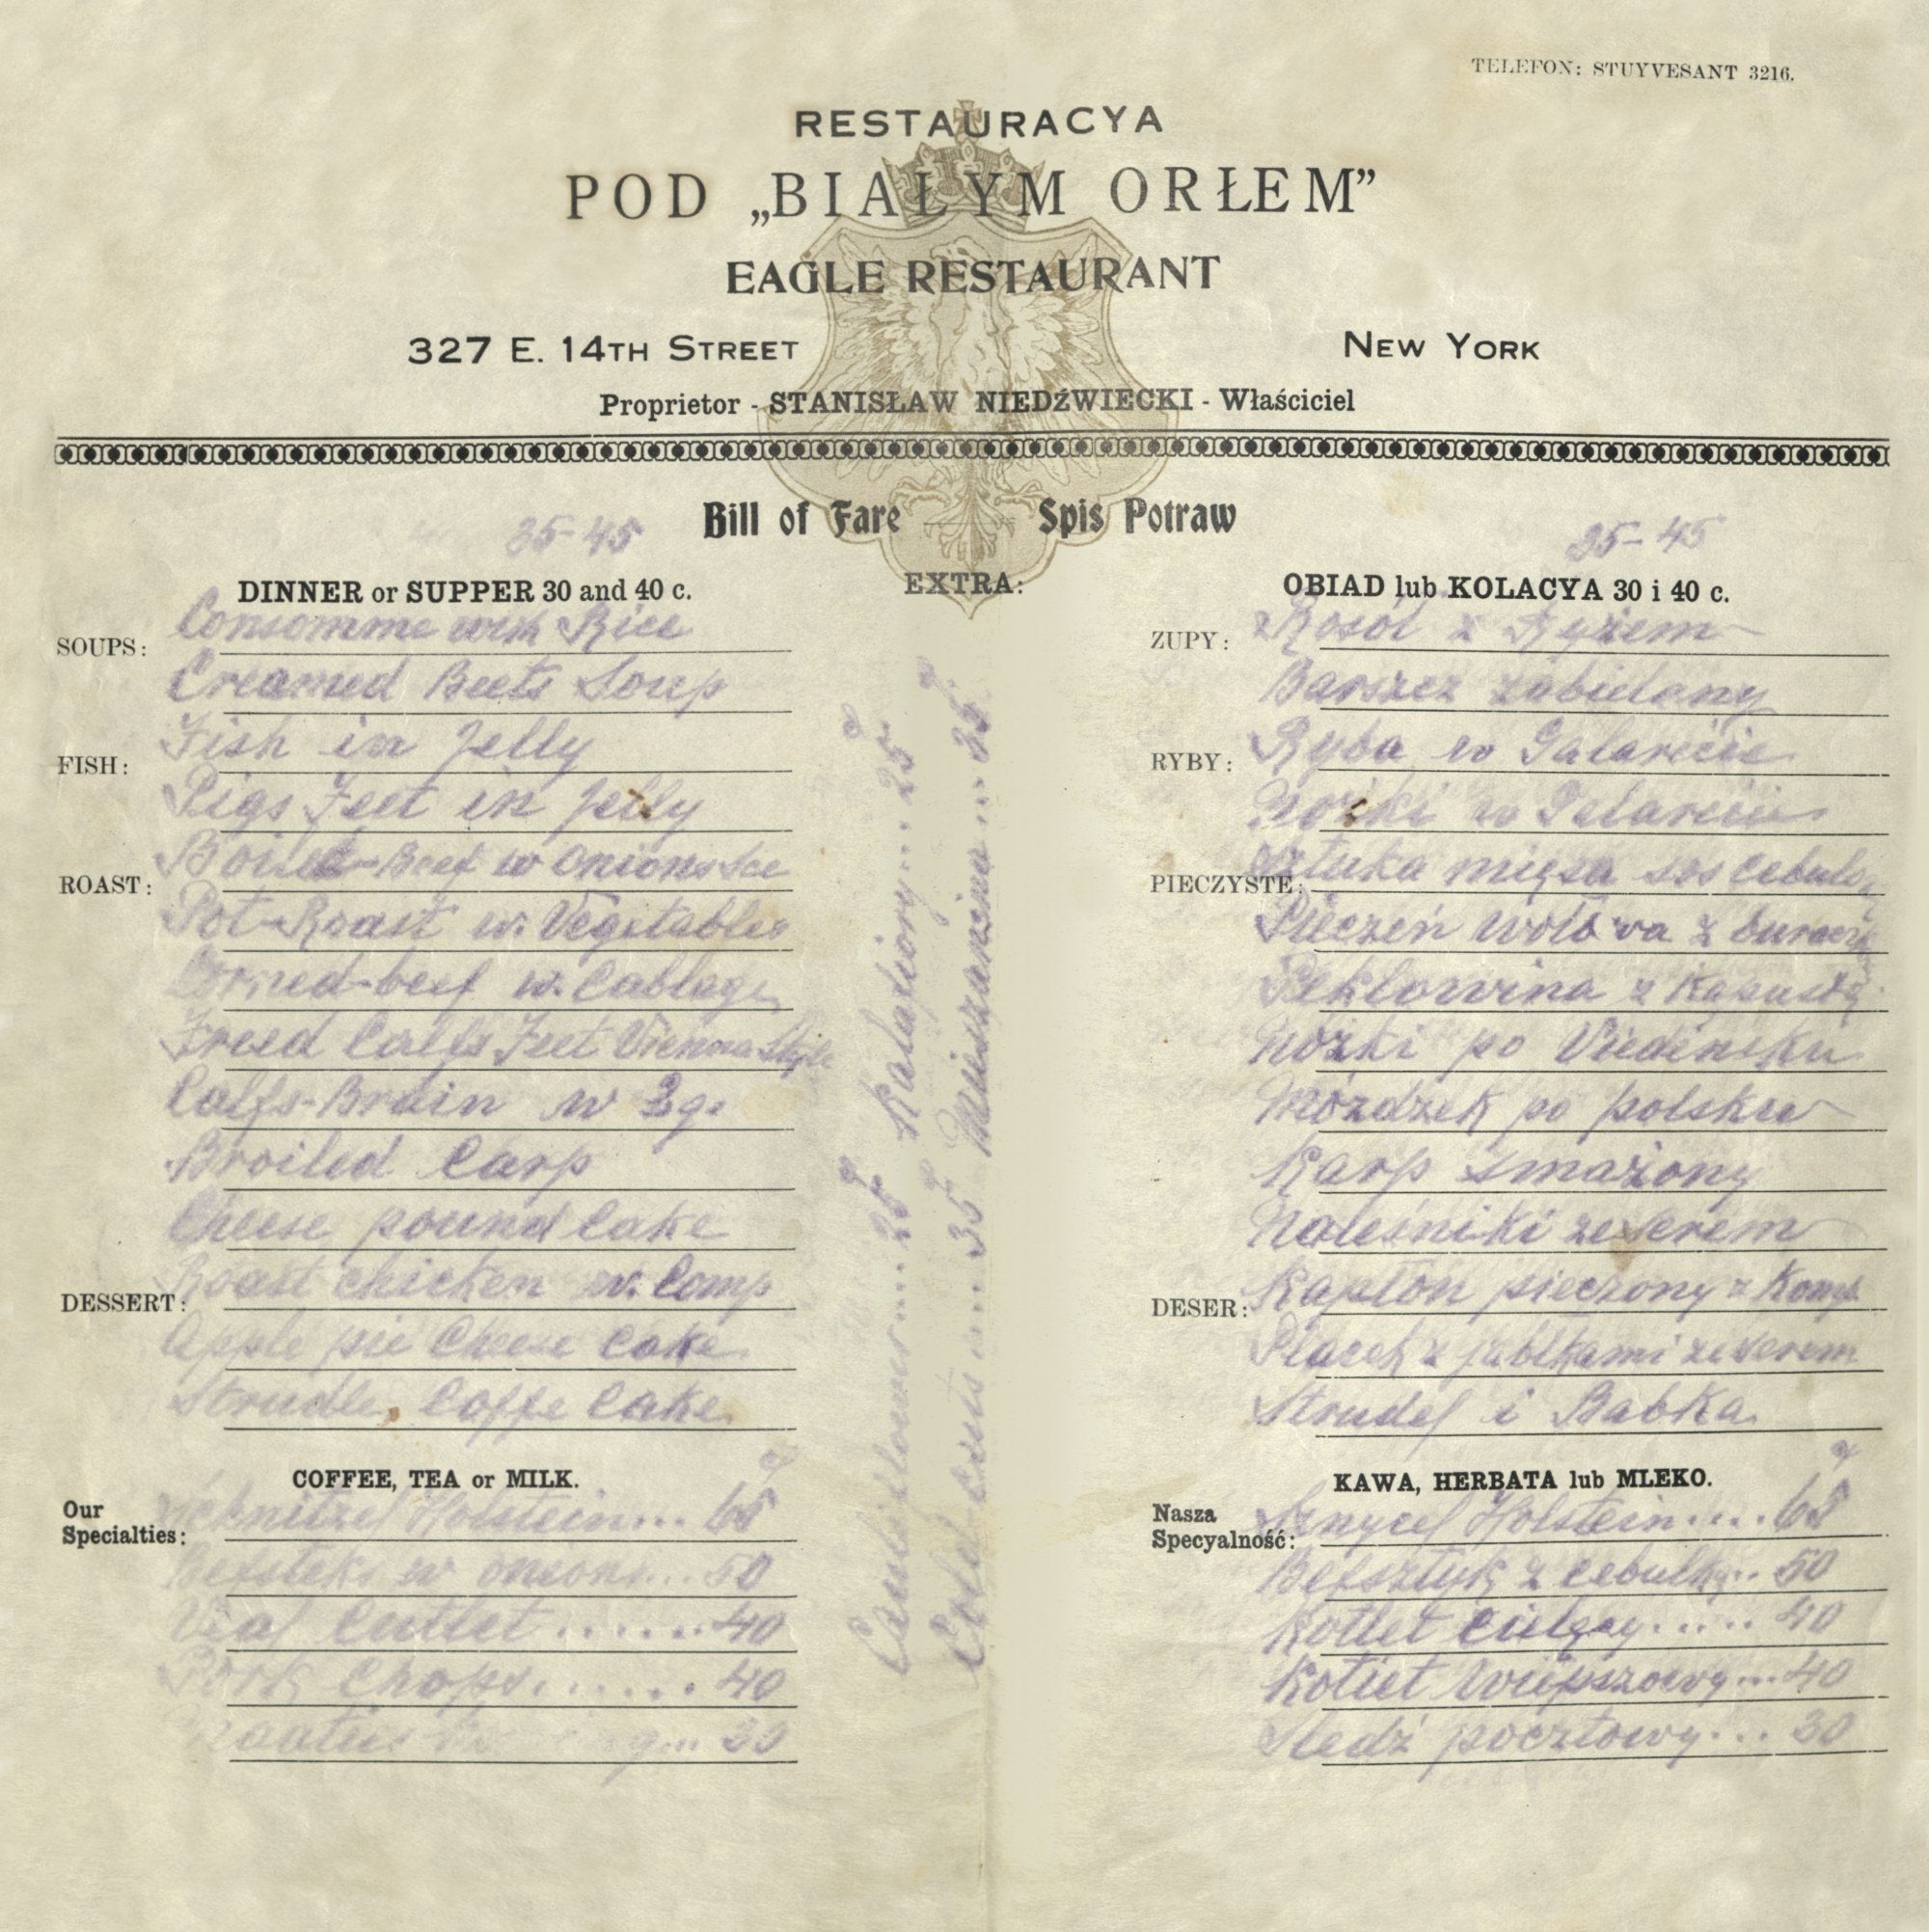 TELEFON: STUYVESANT 3216.
RESTAURACYA
POD „BIAŁYM ORŁEM”
EAGLE RESTAURANT
327 E. 14TH STREET NEW YORK
Proprietor - STANISŁAW NIEDŹWIECKI - Właściciel
Bill of Fare Spis Potraw
35-45
DINNER or SUPPER 30 and 40 c.
SOUPS: Consomme with Rice
Creamed Beets Soup
FISH: Fish in Jelly
Pigs Feet in Jelly
ROAST: Boiled-Beef w Onions Sce
Pot-Roast w. Vegetables
Corned-beef w. Cabbage
Freed Calfs Feet Vienna Style
Calfs-Brain w Eg.
Broiled Carp
Cheese pound Cake
DESSERT: Roast chicken w. Comp
Apple pie Cheese Cake
Strudle, Coffe Cake
COFFEE, TEA or MILK.
Our Specialties: Schnitzel Holstein... 65 c
Befsteks w onions... 50
Veal Cutlet ....... 40
Pork Chops....... 40
30
EXTRA:
Cauliflower.... 25 c Kalafiory.... 25 c
Cold cuts .... 35 c 35 c
35-45
OBIAD lub KOLACYA 30 i 40 c.
ZUPY: Rosół z Ryżem
Barszcz zabielany
RYBY: Ryba w Galarecie
Nóżki w Galarecie
PIECZYSTE: Sztuka mięsa sos cebulo
Pieczeń wołowa z buracz
Peklowina z Kapustą
Nóżki po Viedeńsku
Móżdżek po polsku
Karp smażony
Naleśniki ze serem
DESER: Kapłon pieczony z Komp
Placek z jabłkami ze serem
Strudel i Babka
KAWA, HERBATA lub MLEKO.
Nasza Specyalność: Sznycel Holstein..... 65 c
Befsztyk z cebulką.. 50
Kotlet cielęcy..... 40
Kotlet wieprzowy... 40
Śledź pocztowy... 30